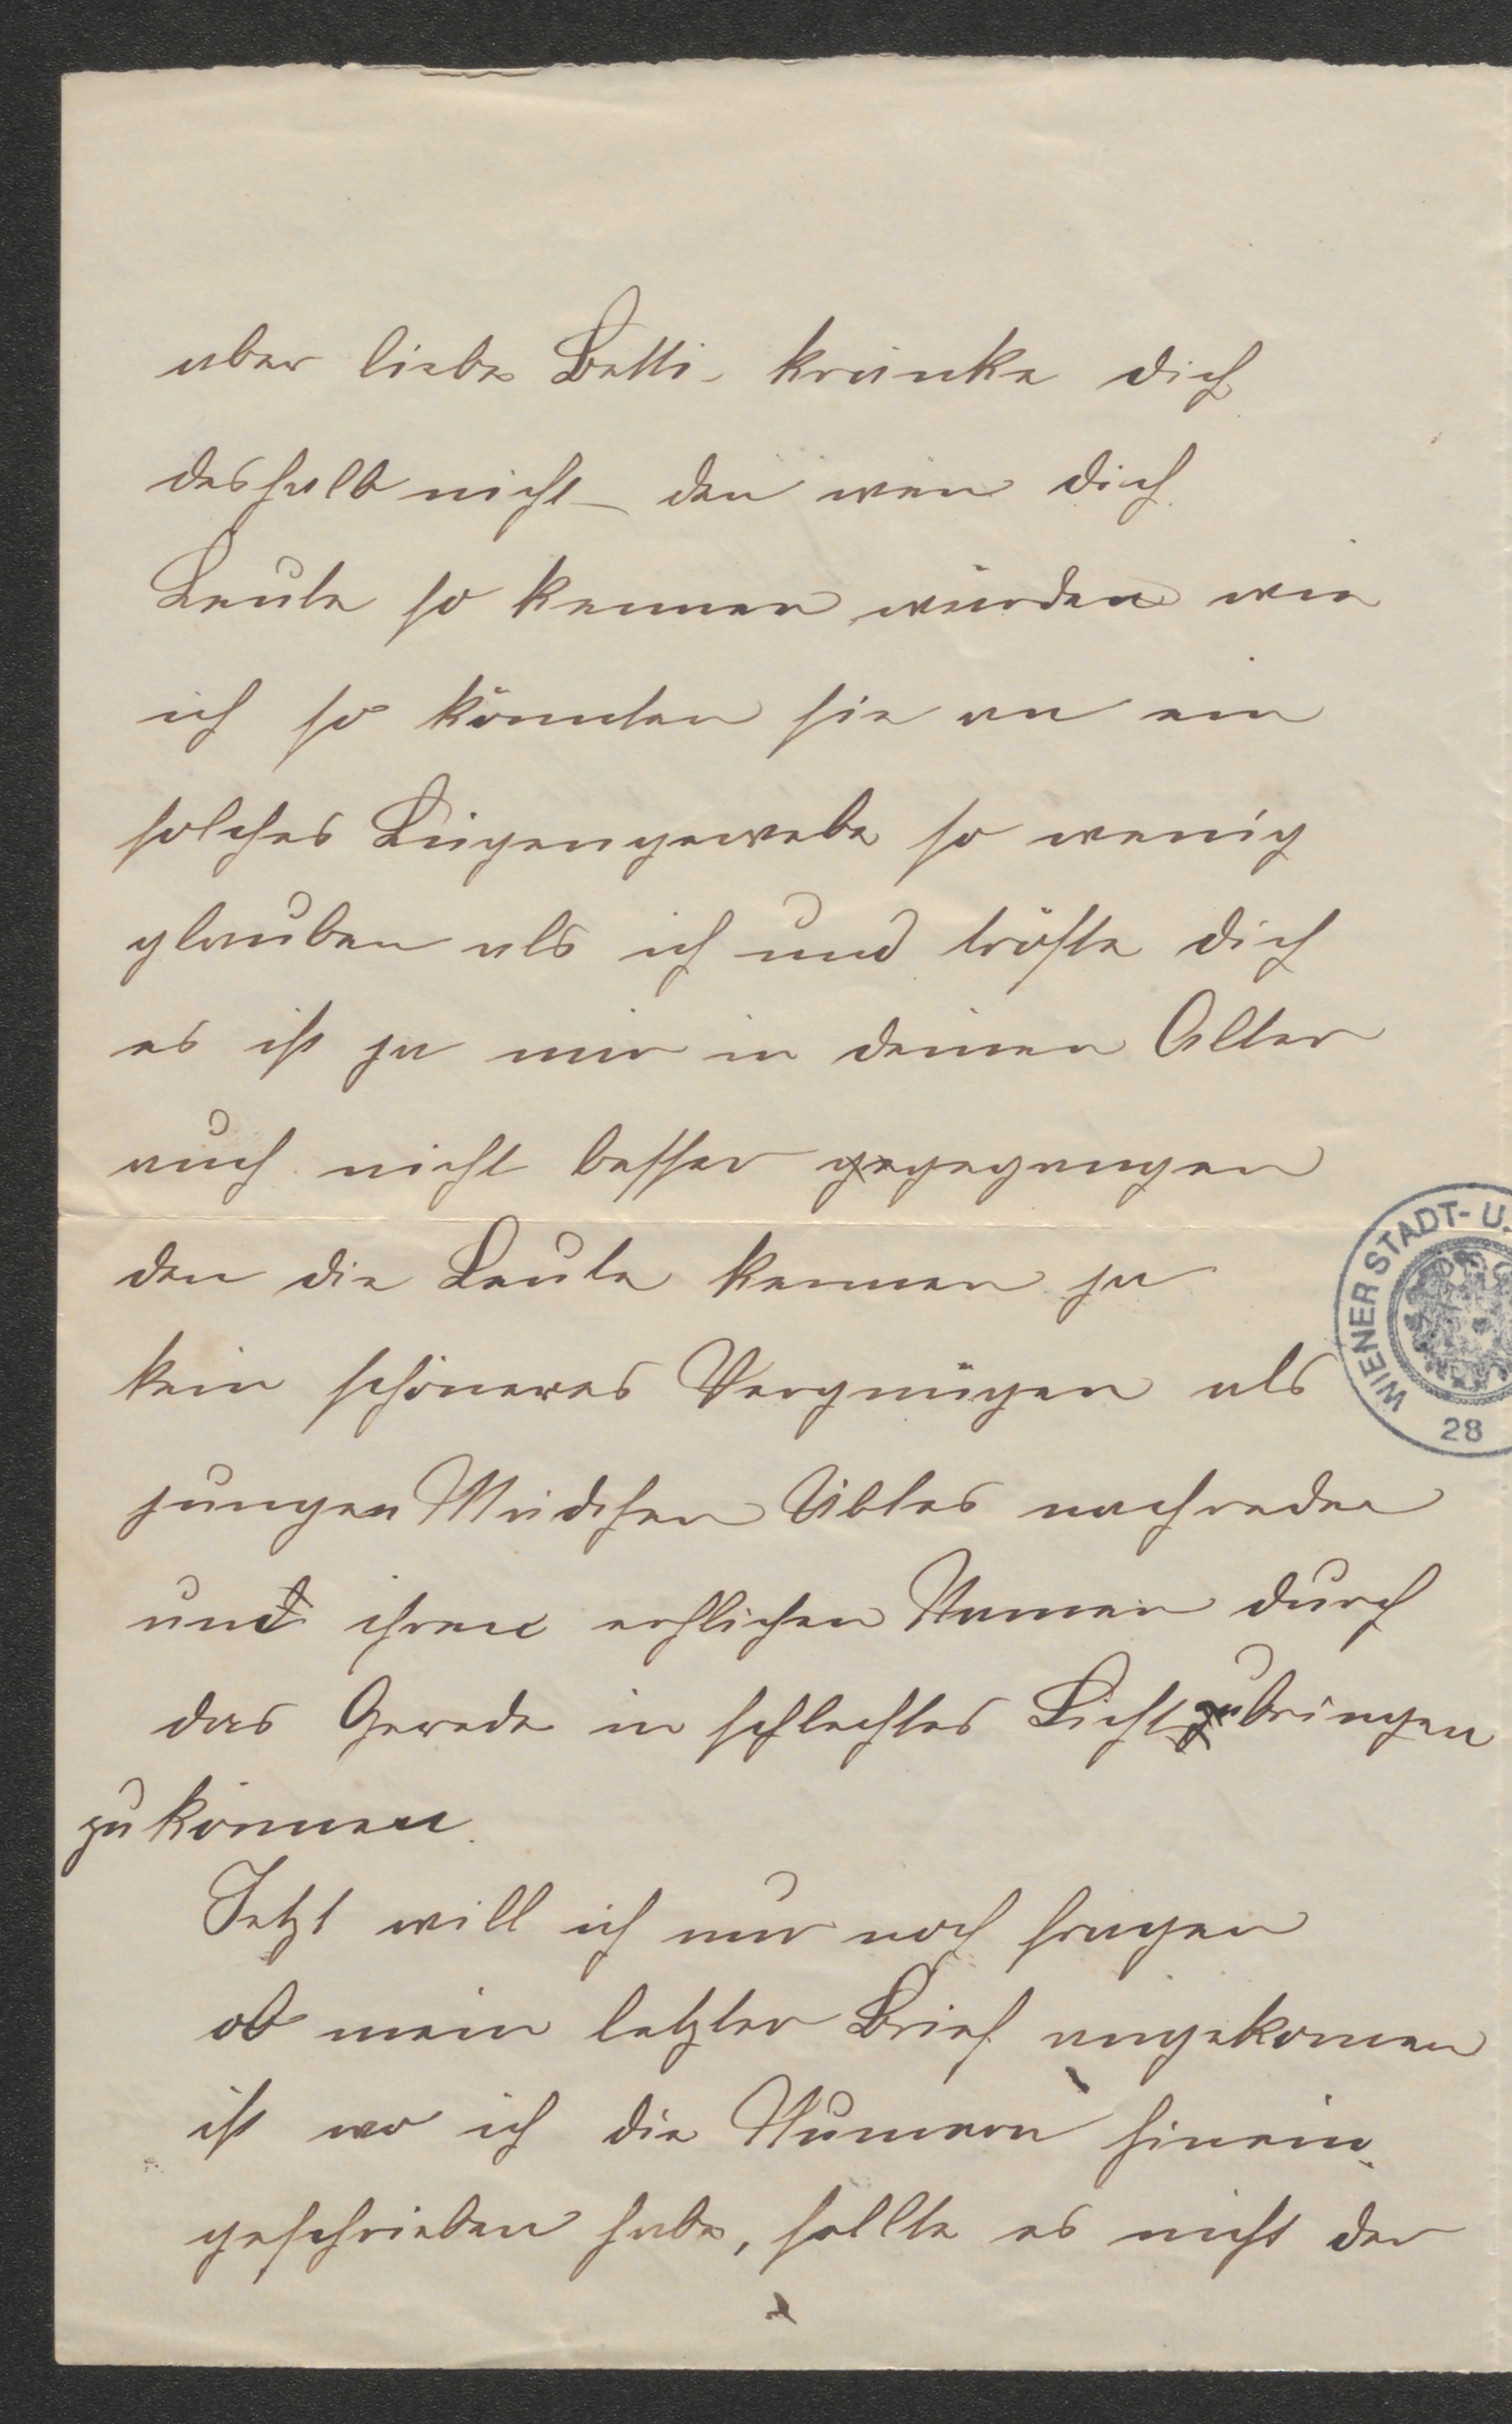 aber liebe Betti kränke dich
deshalb nicht – den wen dich
Leute so kennen würden wie
ich so könnten sie an ein
solches Lügengewebe so wenig
glauben als ich und tröste dich
es ist ja mir in deinen Alter
auch nicht besser gegegangen
den die Leute kennen ja
kein schöneres Vergnügen als
jungen Mädchen Übles nachreden
und ihren ehrlichen Namen durch
das Gerede in schlechtes Licht zu bringen
zu können.
Jetzt will ich nur noch fragen
ob mein letzter Brief angekomen
ist wo ich die Numern hinein
geschrieben habe, sollte es nicht der
WIENER STADT- U.
28